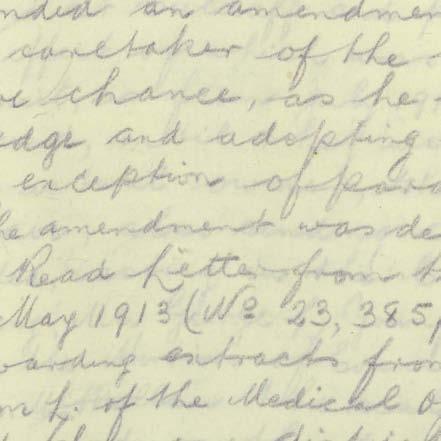 nded an amendmen
caretaker of the
ve chance, as he
edge and adopting
exception of para
he amendment was de
Read Letter from
May 1913 (No 23,385,
warding extracts from
m L. of the Medical O